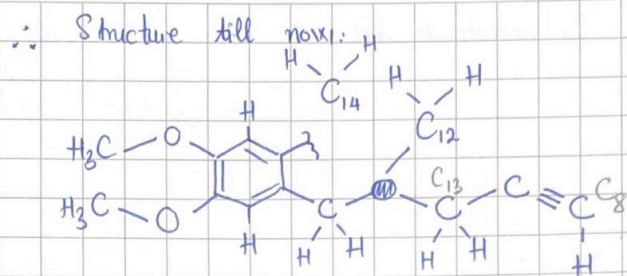 ∴ Structure till now:
H H
C14
H H
H
C12
H3C O
C13 C ≡ C C8
H3C O
C C
H H H H H H